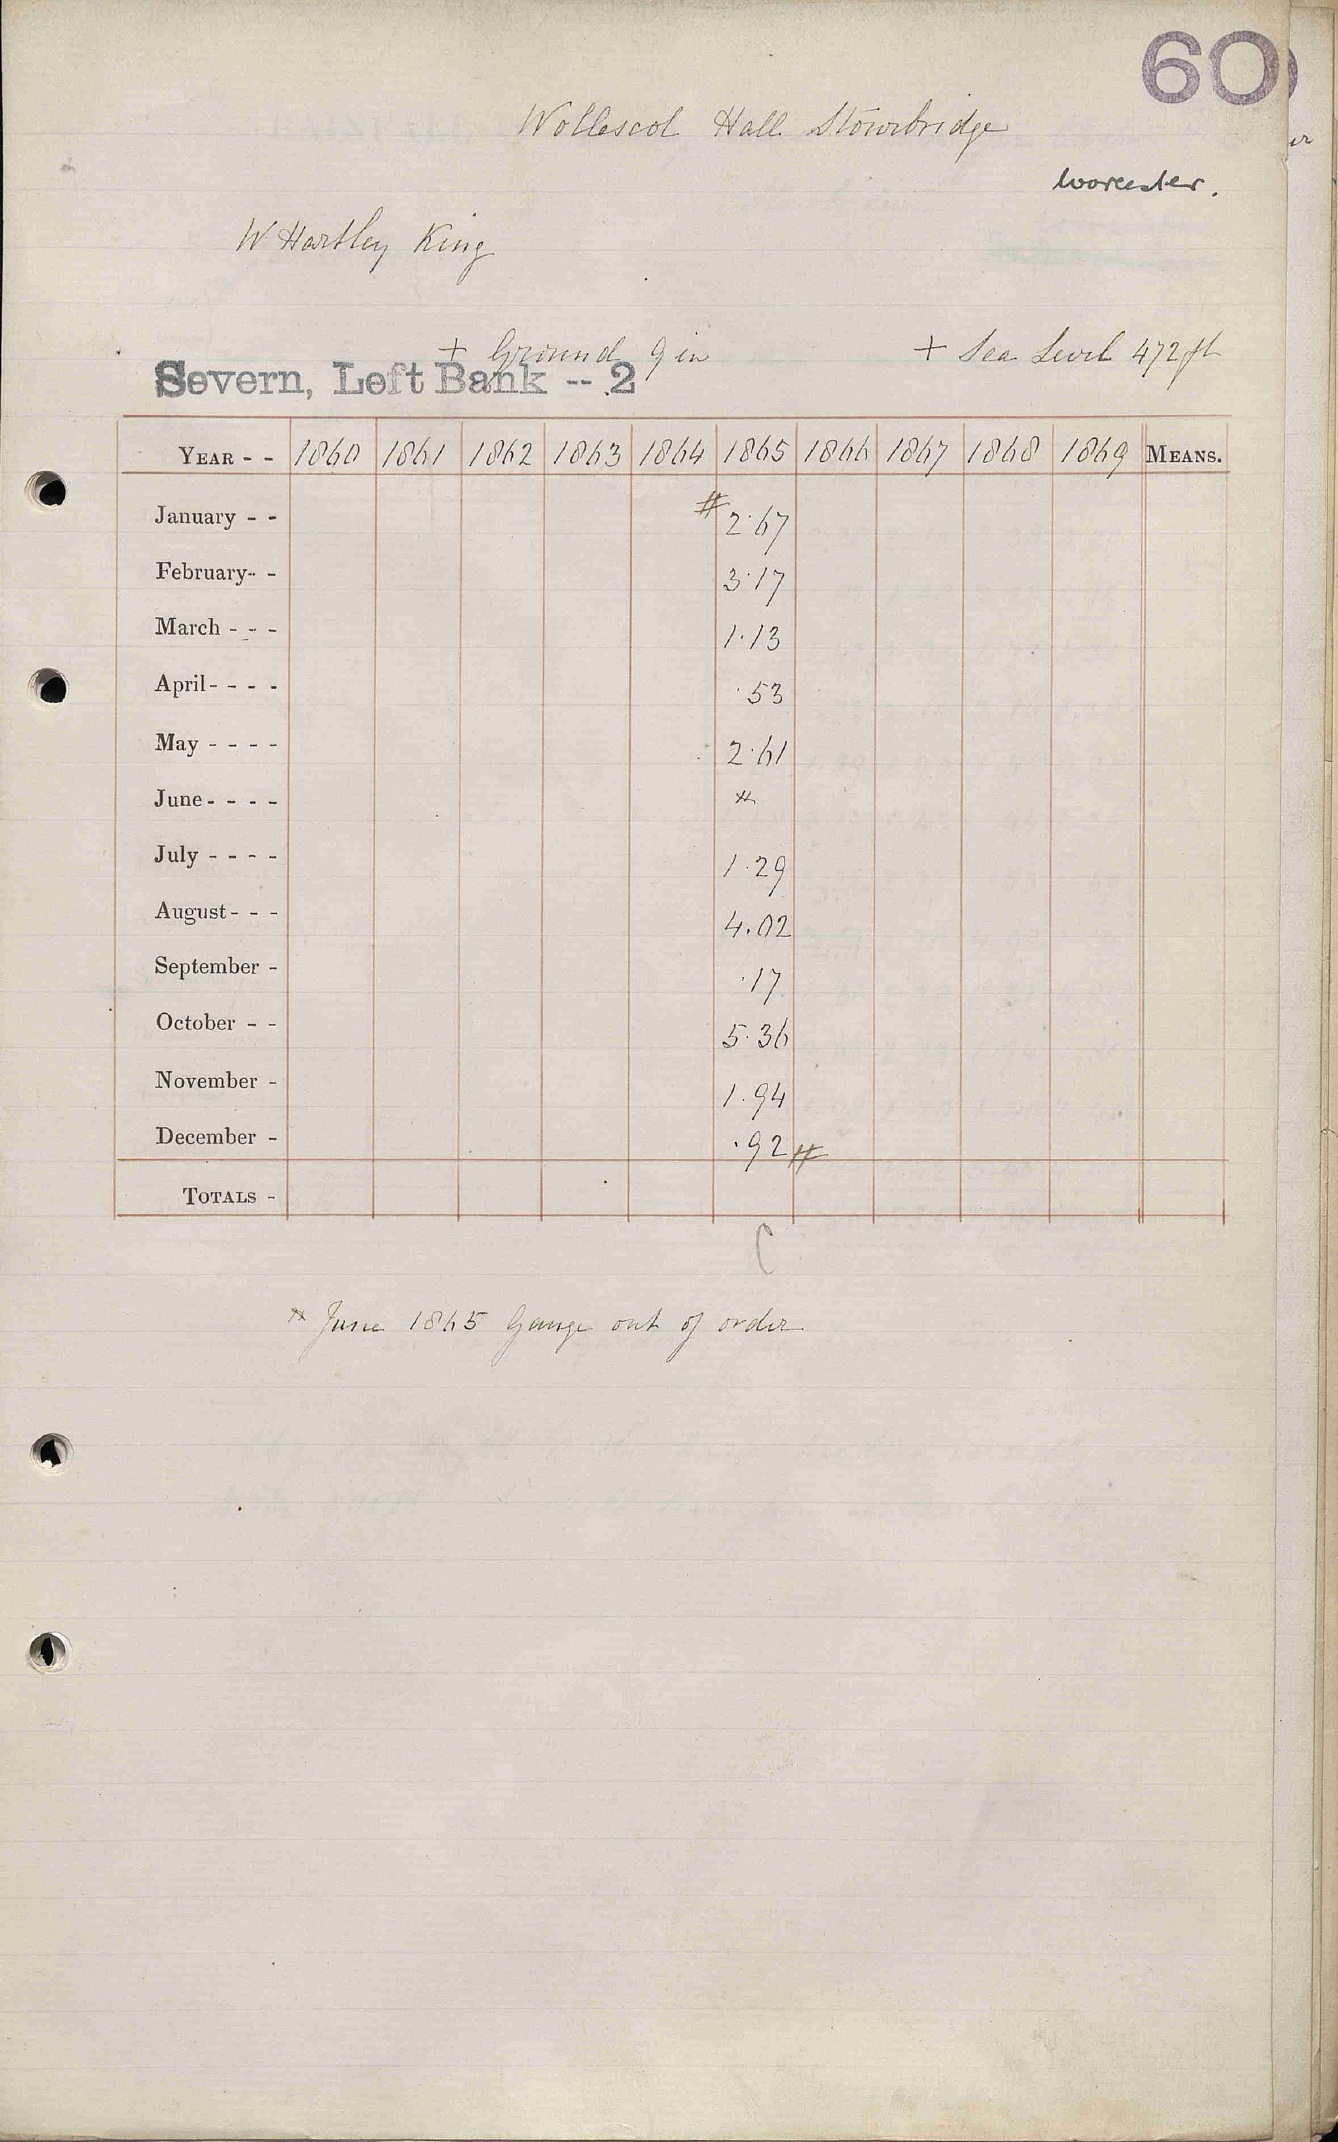 60
Wollescot Hall Stourbridge
Worcester.
W Hartley King
+ Ground 9 in + Sea Level 472 ft
Severn, Left Bank -- 2
YEAR - - 1860 1861 1862 1863 1864 1865 1866 1867 1868 1869 MEANS.
January - - # 2.67
February - - 3.17
March - - - 1.13
April - - - - .53
May - - - - 2.61
June - - - - *
July - - - - 1.29
August - - - 4.02
September - .17
October - - 5.36
November - 1.94
December - .92 #
TOTALS -
C
* June 1865 Gauge out of order